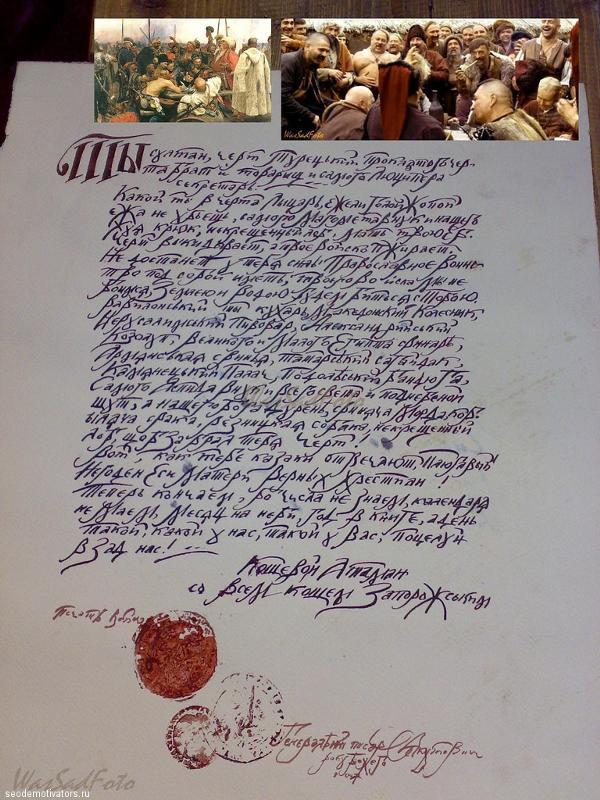 WarSadFoto
Ты султан, черт Турецький, Проклятого чер-
та брат и товарищ и самого Люцыпера
секретарь.
Какой ты в черта лицарь, ежели голой жопой
ежа не убьешь,
Черт выкидывает, а твое войско пожирает.
Не достанет у тебя силы Православное воинс-
тво под собою иметь, твоего войска мы не
боимся, землею и водою будем битися с тобою.
Вавилонський ты кухарь, Македонский колесник,
Иерусалимський пивовар, Александрийський
козолуп, Великого и Малого Египта свинарь,
Армянськая свинья, татарський сагайдак,
Камянецький палач, Подольський бандюга,
самого внук и всего света и
шут, а нашего бога дурень, свинача морда, коб-
ыляча срака, резницкая собака, некрещеный
лоб, щоб забрал тебя черт!
Вот, как тебе казаки отвечают,
Негоден еси матери верных хрестиан!
Теперь кончаем, бо числа не знаем, календаря
не маем, месяц на небе, год в книге, а день
такой, какой у нас, такой у вас, поцелуй
в зад нас!
Кошевой Атаман
со всем кошем Запорожським
Генеральный писарь
WarSadFoto
seodemotivators.ru